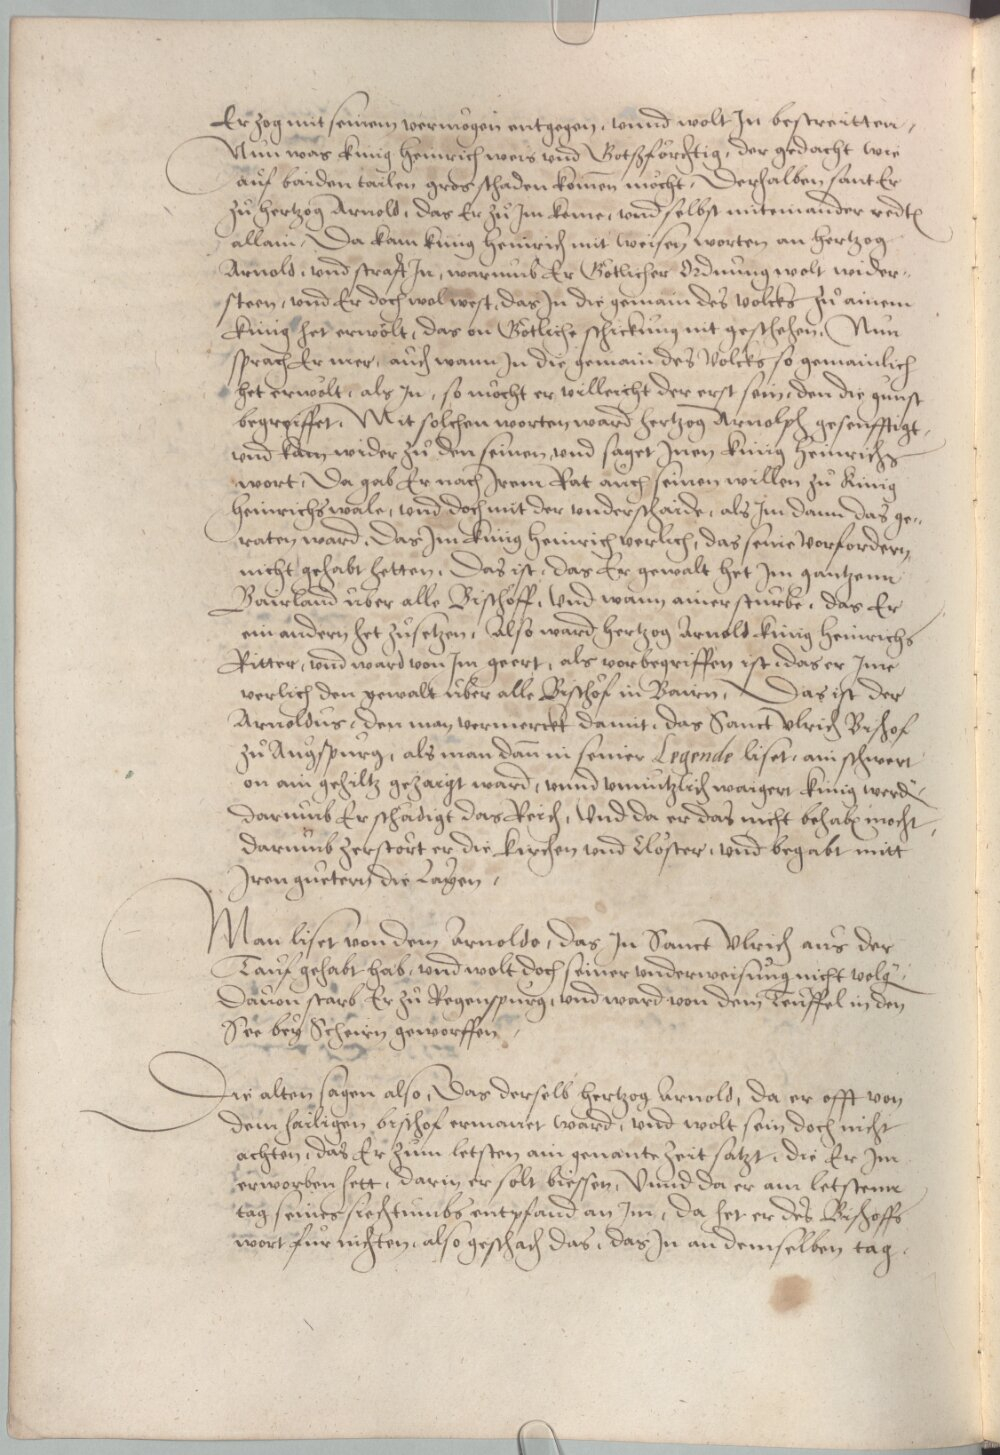 Er zog mit seinem vermögen entgegen, vnnd wolt In bestreitten,
Nun was künig Heinrich weis vnd Gotsförchtig, der gedacht wie
auf baiden tailen gros schaden komen möcht, Derhalben sant Er
zu hertzog Arnold, das Er zu Im keme, vnd selbst miteinander redtn
allain, Da kam künig Heinrich mit weisen worten an hertzog
Arnold, vnd straft In, warumb Er Götlicher Ordnung wolt wider-
steen, vnd Er doch wol west, das In die gemain des volcks zu ainem
künig het erwölt, das on Götliche schickung nit geschehen, Nun
sprach Er mer, auch wann In die gemain des Volcks so gemainlich
het erwölt, als In, so möcht er villeicht der erst sein, den die gunst
begreiffet, Mit solchen worten ward hertzog Arnolph gesenfftigt,
vnd kam wider zu den seinen, vnd saget Inen künig Heinrichs
wort, Da gab Er nach Irem Rat auch seinen willen zu künig
Heinrichs wale, vnd doch mit der vnderschaide, als Im dann das ge-
raten ward, Das Im künig Heinrich verlich, das seine Vorfordern
nicht gehabt hetten, Das ist, das Er gewalt het Im gantzenn
Bairland über alle Bischöff, Vnd wann ainer stürbe, das Er
ein andern het zusetzen, Also ward hertzog Arnold künig Heinrichs
Ritter, vnd ward von Im geert, als vorbegriffen ist, das er Ime
verlich den gewalt über alle Bischöf in Bairn, Das ist der
Arnoldus, den man vermerckt damit, das Sanct Vlrich Bischof
zu Augspurg, als man dann in seiner Legende liset, ain schwert
on ain gehiltz gezaigt ward, vnnd vnnutzlich waigert künig werdn
darumb Er schädigt das Reich, Vnd da er das nicht behabn mocht,
darumb zerstört er die kirchen vnd Clöster, vnd begabt mitt
Iren guetern die Layen,
Man liset von dem Arnoldo, das In Sanct Vlrich aus der
Tauf gehabt hab, vnd wolt doch seiner vnderweisung nicht volgn,
Dauon starb Er zu Regenspurg, vnd ward von dem Teuffel in den
See bey Scheirn geworffen,
Die alten sagen also, Das derselb hertzog Arnold, da er offt von
dem hailigen bischof ermanet ward, vnd wolt sein doch nicht
achten, das Er zum letsten ain genante zeit satzt, die Er Im
erworben hett, darin er solt biessen, Vnnd da er am letstenn
tag seines siechtumbs entpfand an Im, da het er des Bischoffs
wort für nichten, also geschach das, das In an demselben tag,